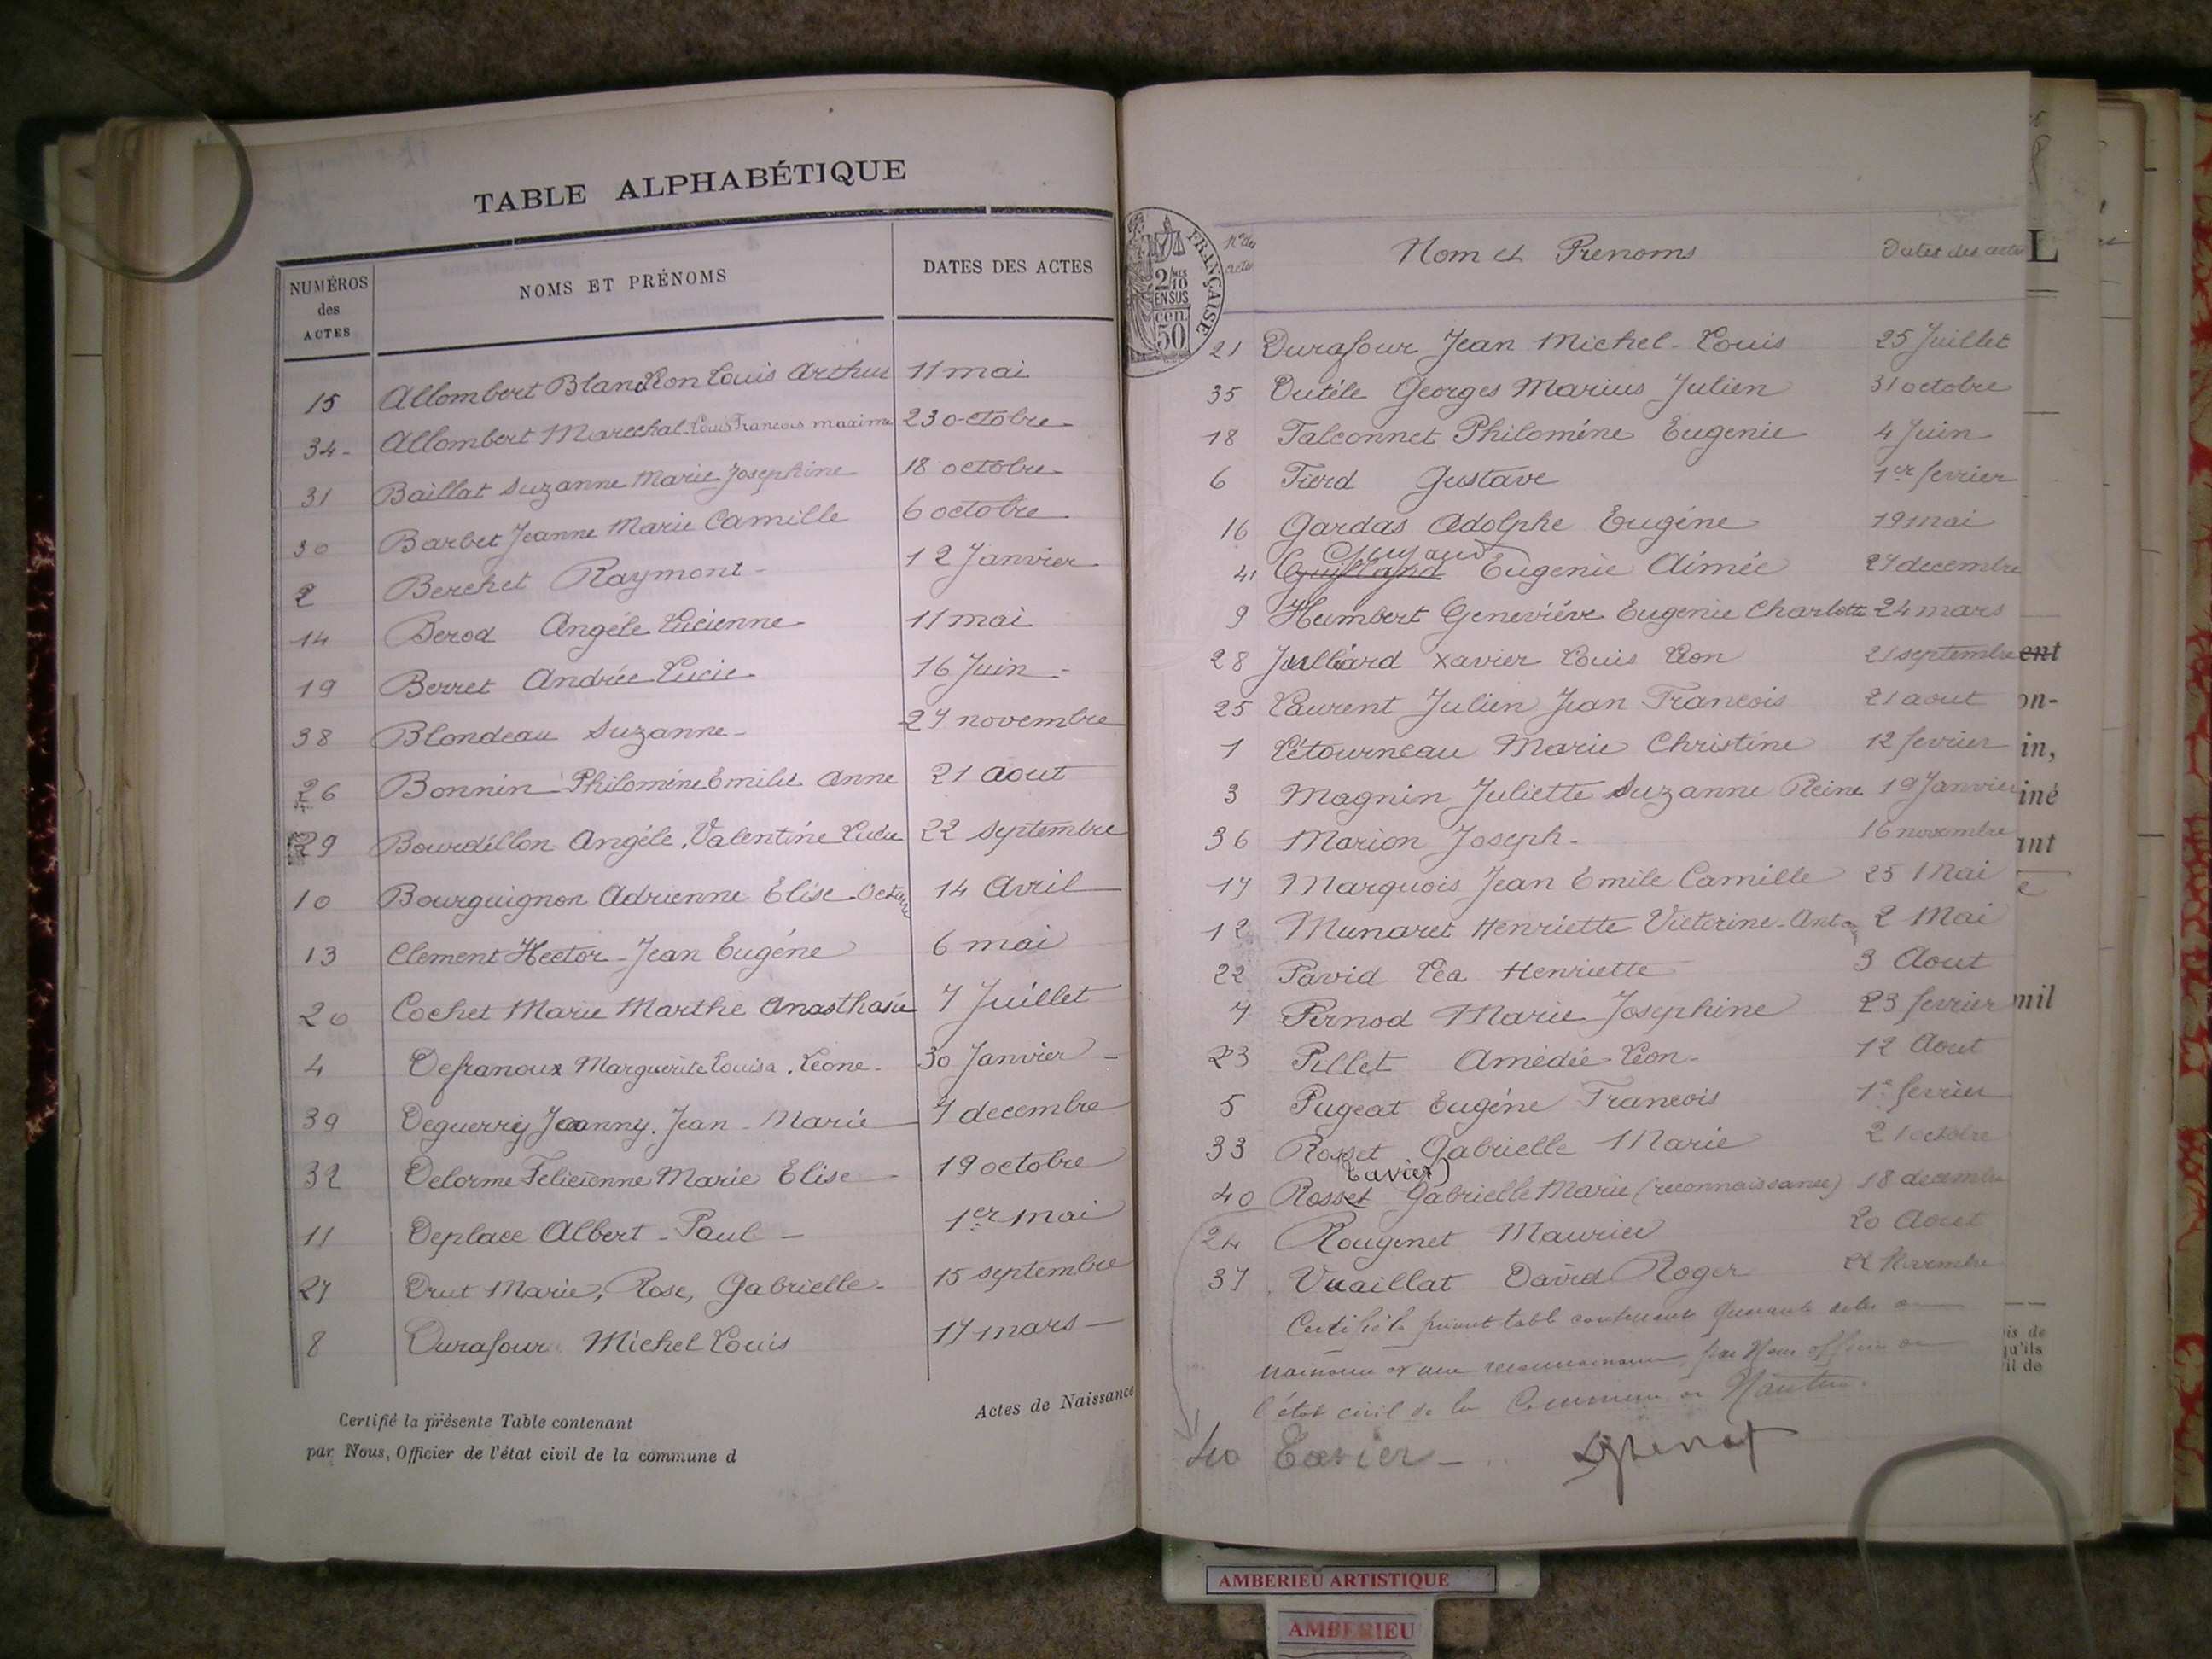 TABLE ALPHABÉTIQUE
NUMÉROS des ACTES NOMS ET PRÉNOMS DATES DES ACTES
15 Allombert Blanc Léon Louis Arthur 11 mai
34 - Allombert Marechal Louis Francois maxime 23 octobre
31 Baillat Suzanne Marie Josephine 18 octobre
30 Barbet Jeanne Marie Camille 6 octobre
2 Berchet Raymont - 12 Janvier
14 Berod Angéle Lucienne 11 mai
19 Berret Andrée Lucie 16 Juin -
38 Blondeau Suzanne - 27 novembre
26 Bonnin Philoméne Emilie Anne 21 aout
29 Bourdillon Angéle, Valentine Lucie 22 septembre
10 Bourguignon Adrienne Elise 14 Avril
13 Clement Hector - Jean Eugéne 6 mai
20 Cochet Marie Marthe Anasthasie 7 Juillet
4 Defranoux Marguerite Louisa. Léone - 30 Janvier -
39 Deguerry Joanny. Jean - Marie 7 decembre
32 Delorme Felicienne Marie Elise 19 octobre
11 Deplace Albert - Paul - 1er mai
27 Drut Marie, Rose, Gabrielle - 15 septembre
8 Durafour Michel Louis 17 mars -
Certifié la présente Table contenant Actes de Naissance
par Nous, Officier de l'état civil de la commune d
FRANÇAISE
2/10
EN SUS
50 cen
No des actes Nom et Prenoms Dates des actes
21 Durafour Jean Michel - Louis 25 Juillet
35 Dutéle Georges Marius Julien 31 octobre
18 Falconnet Philoméne Eugenie 4 Juin
6 Fierd Gustave 1er fevrier
16 Gardas Adolphe Eugéne 19 mai
Guyaud
41 Guilland Eugenie Aimée 27 decembre
9 Humbert Geneviéve Eugenie Charlotte 24 mars
28 Julliard Xavier Louis Léon 21 septembre
25 Laurent Julien Jean Francois 21 aout
1 Létourneau Marie Christine 12 fevrier
3 Magnin Juliette Suzanne Reine 19 Janvier
36 Marion Joseph - 16 novembre
17 Marquois Jean Emile Camille 25 Mai
12 Munaret Henriette Victorine - Ant 2 Mai
22 Pavid Léa Henriette 3 Aout
7 Pernod Marie Josephine 23 fevrier
23 Pillet Amédée Léon - 12 Aout
5 Pugeat Eugéne Francois 1er fevrier
33 Rosset Gabrielle Marie 21 octobre
Tavier)
40 Rosset Gabrielle Marie (reconnaissance) 18 decembre
24 Rougenet Maurice 20 Aout
37 Vuaillat David Roger 22 Novembre
Certifié la présente table contenant quarante actes de
naissance et une reconnaissance, par Nous officier de
l'état civil de la Commune de Nantua.
40 Tavier -
L
ent
on-
in,
iné
ant
e
mil
is de
qu'ils
il de
AMBERIEU ARTISTIQUE
AMBERIEU